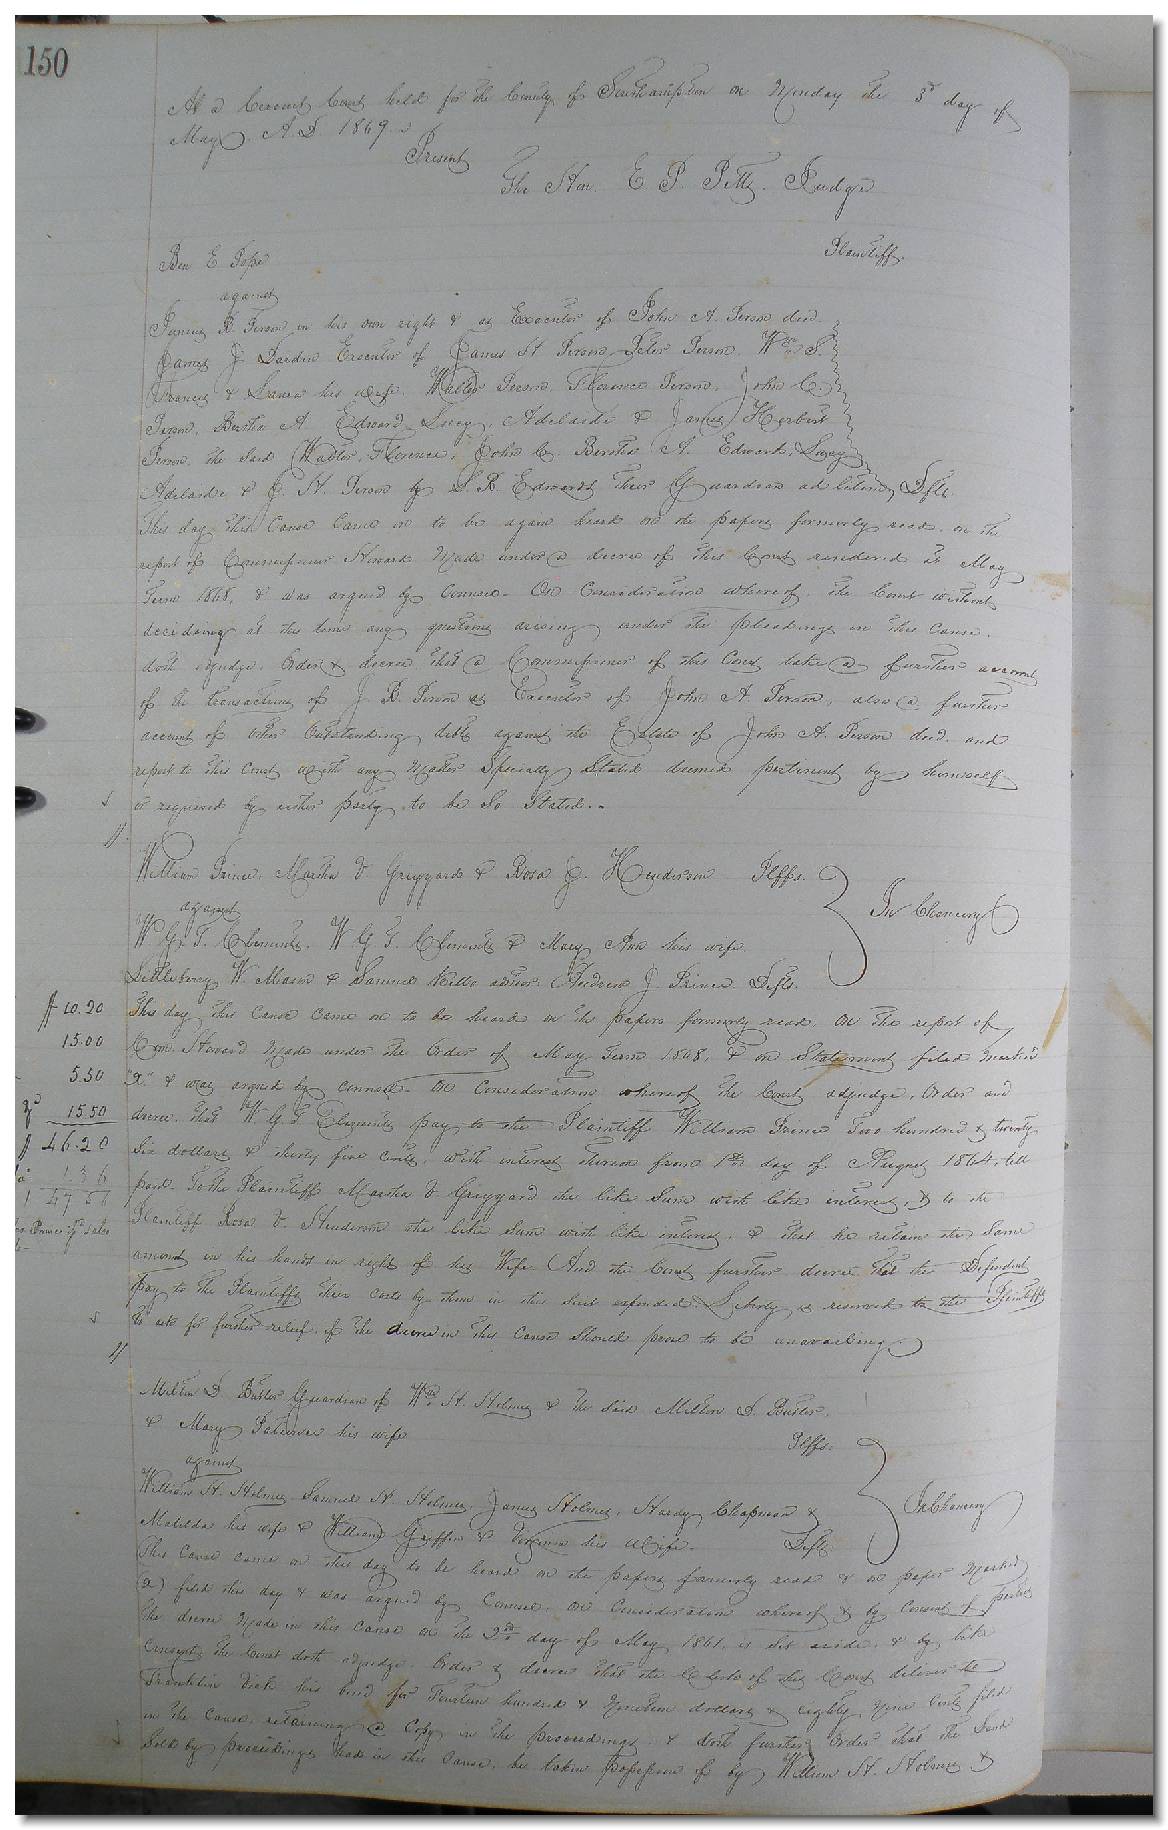 150
At a Circuit Court held for the County of Southampton on Monday the 3rd day of
May A.D 1869.
Present
The Hon. E P. Pitts. Judge
Ben E Pope Plaintiff.
against
Junius R Person in his own right & as Executor of John A. Person decd.
James J. Darden Executor of James H Person, Peter Person, Wm S.
Francis & Laura his wife, Walter Person, Florence Person, John C.
Person, Bertie A. Edward, Lucy, Adelaide & James Herbert
Person, the said Walter, Florence, John C. Bertie A. Edward, Lucy
Adelaide & J. H. Person by L. R. Edwards their Guardian ad litem, Defts.
This day this Cause Came on to be again heard on the papers formerly read, on the
report of Commissioner Howard Made under a decree of this Court rendered at May
Term 1868, & was argued by Counsel. On Consideration whereof, the Court without
deciding at this time any questions arising under the pleadings in this Cause,
doth adjudge, Order & decree that a Commissioner of this Court take a further account
of the transactions of J. R. Person as Executor of John A. Person, also a further
account of other Outstanding debts against the Estate of John A. Person decd. and
report to this Court with any Matter Specially Stated deemed pertinent by himself
or required by either party to be So Stated.
William Prince, Martha V. Griggard & Rosa J. Henderson Plffs.
against In Chancery
W. G. T. Clements. W. G. T. Clements & Mary Ann his wife
Littleberry W. Mason & Samuel Kello admor. Andrew J. Prince Defts.
$10.20 This day this Cause Came on to be heard on the papers formerly read, On the report of
15.00 Com. Howard Made under the Order of May Term 1868, & on Statement filed marked
5.50 "a" & was argued by counsel. On Consideration whereof the Court adjudge, Order and
15.50 decree that W. G. T. Clements pay to the Plaintiff William Prince Two hundred & twenty
$46.20 Six dollars & thirty five cents, with interest thereon from 1st day of August 1864, till
1 36 paid. To the Plaintiff Martha V Griggard the like Sum with like interest, & to the
Plaintiff Rosa V. Henderson the like Sum with like interest, & that he retain the Same
amount in his hands in right of his Wife And the Court further decree that the Defendant
pay to the Plaintiffs their costs by them in this Suit expended. Liberty is reserved to the Plaintiffs
to ask for further relief, if the decree in this Cause Should prove to be unavailing.
Milton D. Butler Guardian of Wm H. Holmes & the said Milton D. Butler,
& Mary his wife Plffs.
against In Chancery
William H. Holmes, Samuel H. Holmes, James Holmes, Hardy Chapman &
Matilda his wife & William Griffin & his Wife. Defts.
This Cause came on this day to be heard on the papers formerly read & on paper Marked
(a) filed this day & was argued by Counsel. On Consideration whereof & by Consent of parties
the decree Made in this Cause on the 2nd day of May 1861, is Set aside, & by like
Consent, the Court doth adjudge, Order & decree that the Clerk of this Court deliver to
Franklin Vick his bond for Fourteen hundred & Nineteen dollars & eighty Nine Cents filed
in the Cause, retaining a Copy in the proceedings, & doth further Order that the Land
Sold by proceedings had in this Cause, be taken possession of by William H. Holmes &